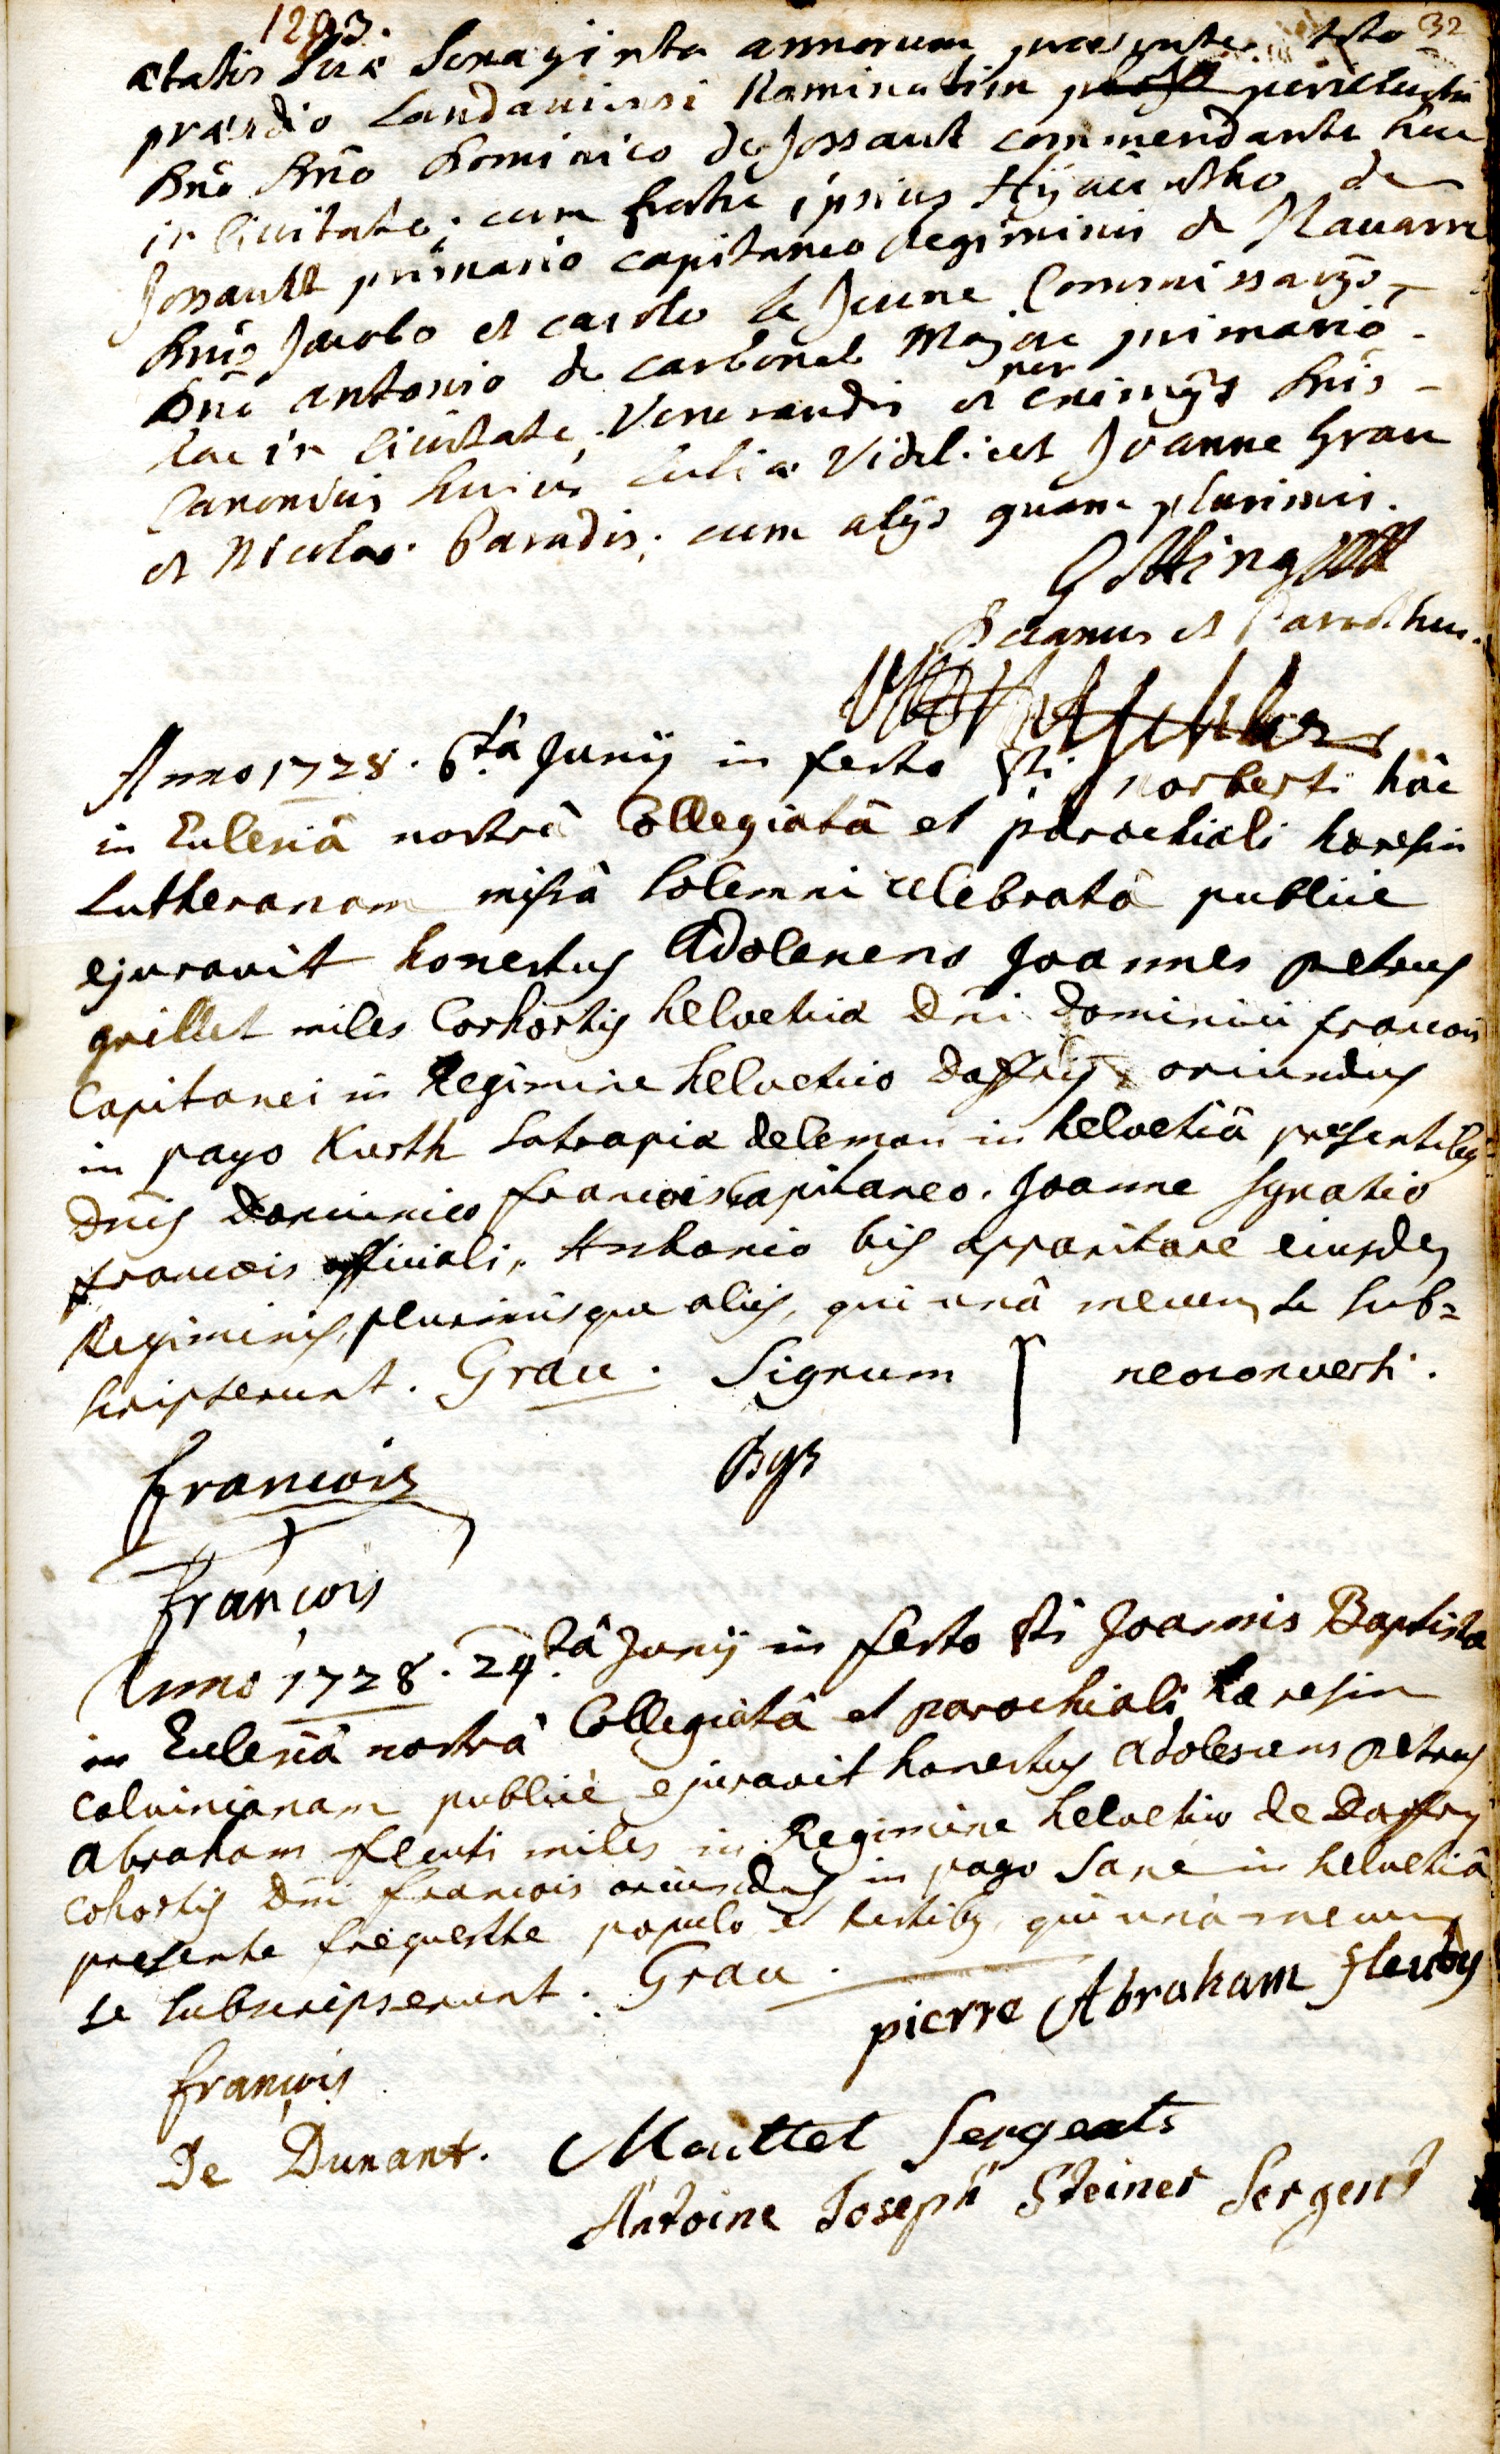 1293. 32
ætatis suæ sexaginta annorum præsente toto
præsidio Landaviensi Nominatim perillustri
Dno Dno Dominico de Jossaut commendante hac
in Civitate; cum fratre ipsius Hyacintho de
Jossautt primario capitaneo Regiminis de Navarre
Dnis Jacobo et carolo le Jeune Commissarijs,
Dno antonio de carbonel Majore primario
hac in Civitate, Venerandis et per eximijs Dnis
Canonicis huius Ecclesiæ Videlicet Joanne Grau
et Nicolao Paradis; cum alijs quam plurimis.
Götting
Decanus et Paroch. huc.
Anno 1728. 6tâ Junij in festo Sti Norberti hâc
in Eclesiâ nostrâ Collegiatâ et parochiali hæresin
Lutheranam missâ solemni celebratâ publice
ejuravit honestus Adolescens Joannes petrus
grillet miles Corhortis helvetiæ Dni Dominici francois
Capitanei in Regimine helvetico Daffry oriundus
in pago Kurth Satrapiæ delemon in helvetiâ præsentibus
Dnis Dominico francois Capitaneo. Joanne Ignatio
francois officiali, Anthonio bis apparitore eiusdem
Regiminis, plurimisque alijs, qui unâ mecum se sub=
scripserunt. Grau. Signum neoconversi.
francois Bys
françois
Anno 1728. 24tâ Junij in festo Sti Joannis Baptistæ
in Eclesiâ nostrâ Collegiatâ et parochiali hæresin
calvinianam publicè ejuravit honestus adolescens petrus
Abraham fleuti miles in Regimine helvetico de Daffry
cohortis Dni francois oriundus in pago Sane in helvetiâ
presente frequente populo et testibus, qui unâ mecum
se subscripserunt. Grau.
pierre Abraham fleuty
françois
De Dunant. Mouttet Sergeants
Antoine Joseph Steiner Sergent